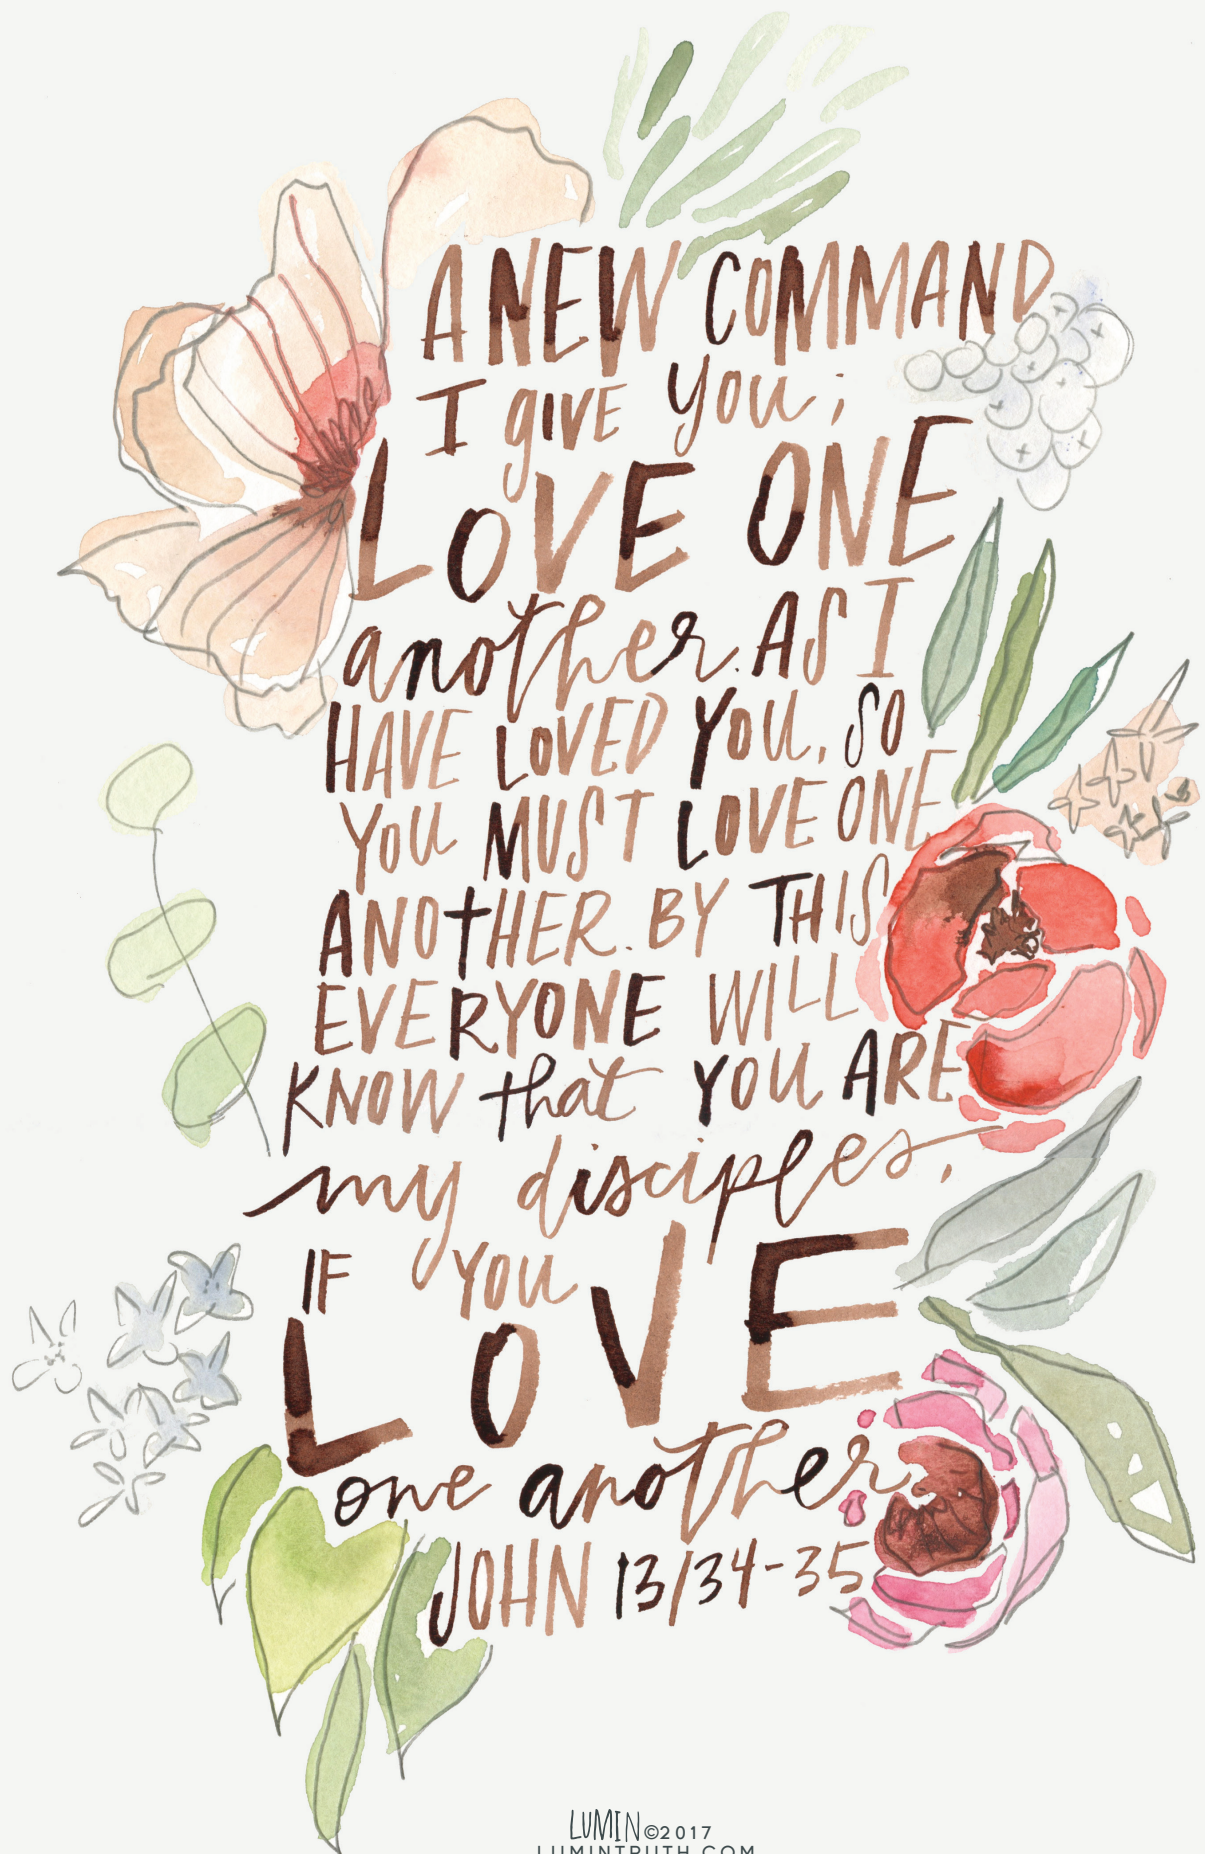 A NEW COMMAND
I gIVE YOU;
LOVE ONE
another. AS I
HAVE LOVED YOU, SO
YOU MUST LOVE ONE
ANOTHER. BY THIS
EVERYONE WILL
KNOW that YOU ARE
my disciples,
IF YOU
LOVE
one another
JOHN 13/34-35
LUMIN ©2017
LUMINTRUTH.COM